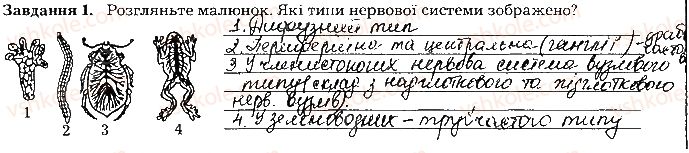 Завдання 1. Розгляньте малюнок. Які типи нервової системи зображено?
1. Дифузний тип
2. Периферійна та центральна (ганглії) -
3. У членистоногих нервова система вузлового
типу (склад з надглоткового та підглоткового
нерв. вузлів).
4. У земноводних - трубчастого типу
1 2 3 4